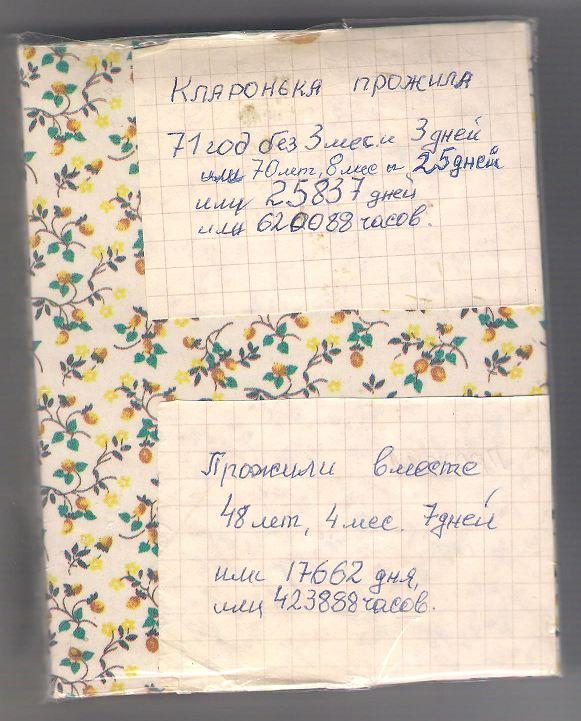 Кларонька прожила
71 год без 3 мес. и 3 дней
или 70 лет, 8 мес и 25 дней
или 25837 дней
или 620088 часов.
Прожили вместе
48 лет, 4 мес. 7 дней
или 17662 дня,
или 423888 часов.